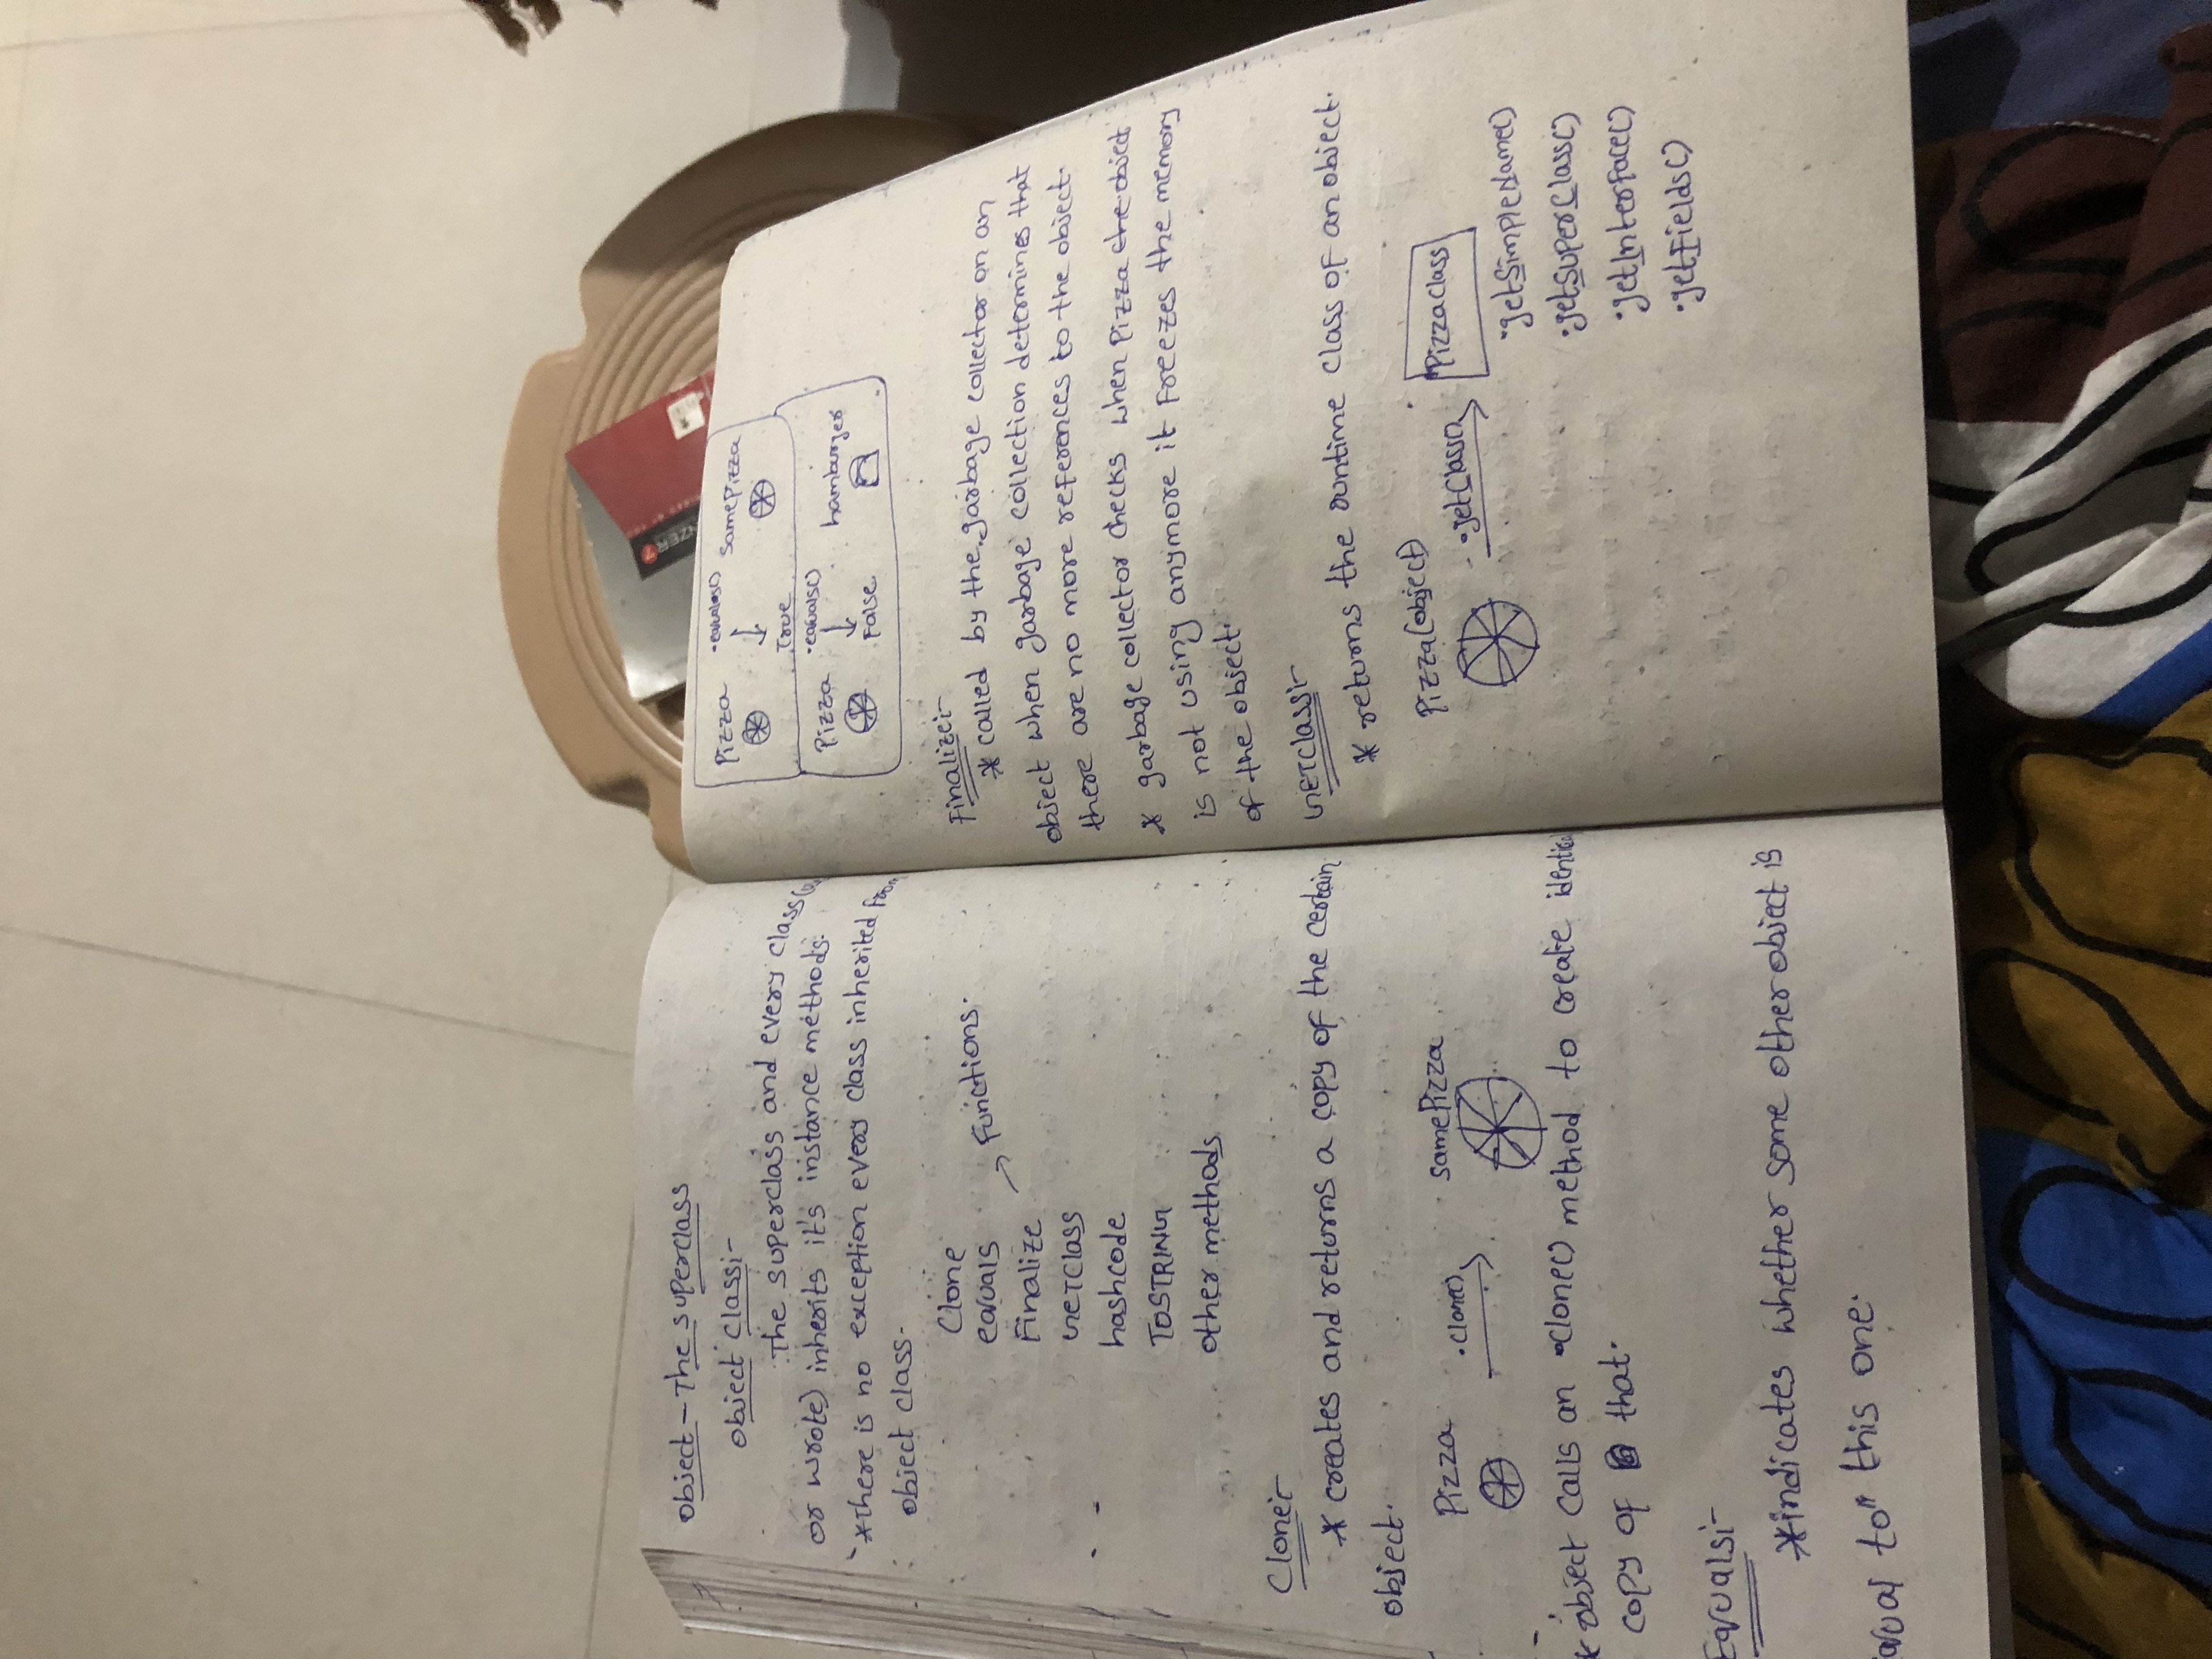 Object - The Superclass
Object Class:-
The superclass and every class
or wrote) inherits it's instance methods.
*There is no exception every class inherited from
object class.
Clone
equals
Finalize → Functions.
GETClass
hashcode
TOSTRING
other methods
Clone:-
* creates and returns a copy of the certain
object.
Pizza .clone() samePizza
* object calls an .clone() method to create identical
copy of that.
Equals:-
*indicates whether some other object is
equal to" this one.
Pizza .equales() samePizza
↓
True
Pizza .equals() hamburger
↓
False
Finalize:-
* called by the garbage collector on an
object when garbage collection determines that
there are no more references to the object.
* garbage collector checks when Pizza the object
is not using anymore it freezes the memory
of the object.
GETClass:-
* returns the runtime class of an object.
Pizza(object) .getClass() PizzaClass
.getSimpleName()
.getSuperClass()
.getInterface()
.getFields()